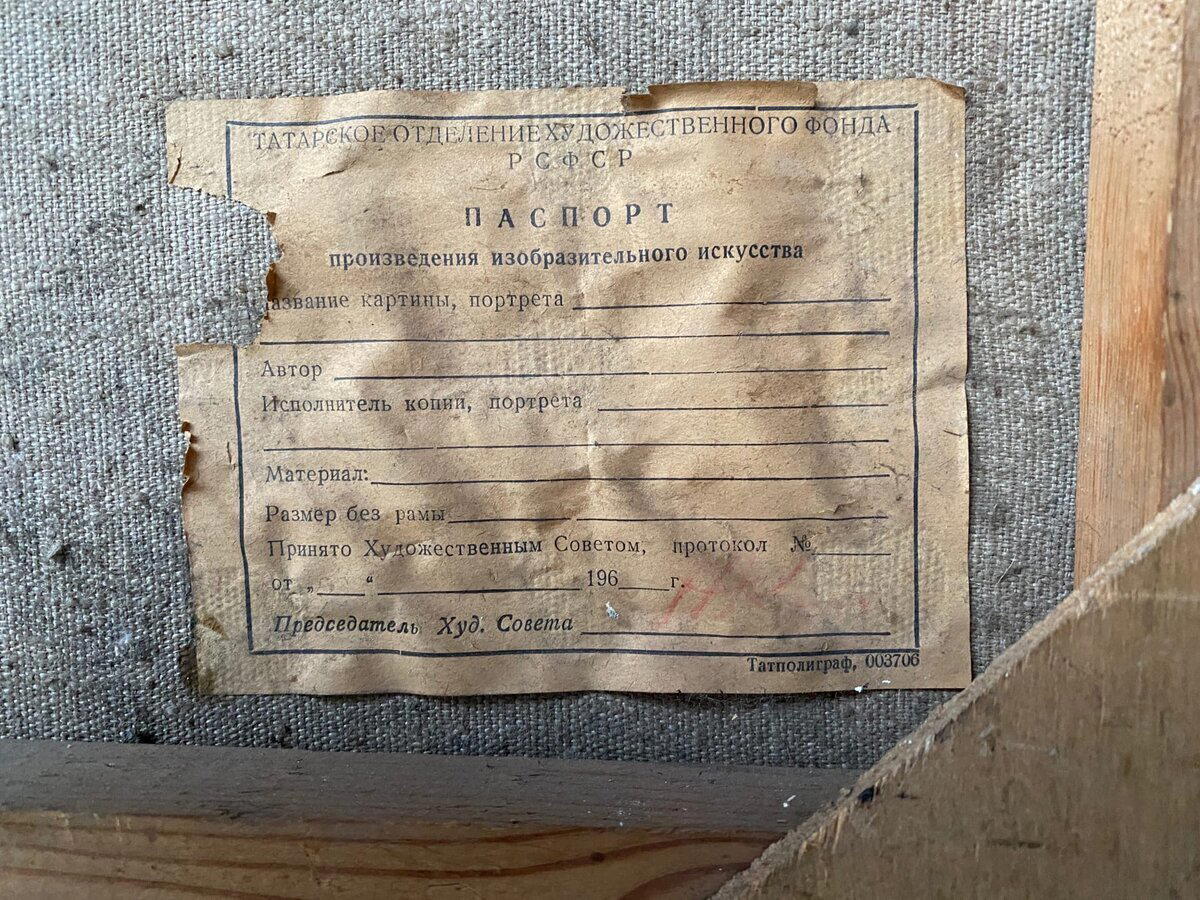 ТАТАРСКОЕ ОТДЕЛЕНИЕ ХУДОЖЕСТВЕННОГО ФОНДА
РСФСР
ПАСПОРТ
произведения изобразительного искусства
азвание картины, портрета
Автор
Исполнитель копии, портрета
Материал:
Размер без рамы
Принято Художественным Советом, протокол №
от „ “ 196 г.
Председатель Худ. Совета
Татполиграф, 003706